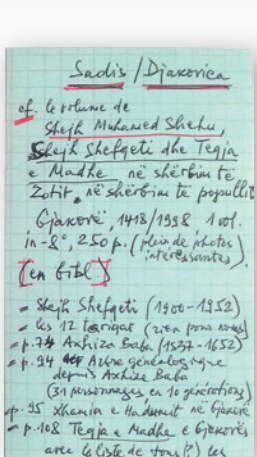 Sadis / Djakovica
cf. le volume de
Shejh Muhamed Shehu,
Shejh Shefqeti dhe Teqja
e Madhe në shërbim të
Zotit, në shërbim të popullit
Gjakovë, 1418/1998 1 vol.
in-8°, 250 p. (plein de photos
intéressantes)
[en bibl.]
= Shejh Shefqeti (1900-1952)
= les 12 tariqat (rien pour nous)
= p.74 Axhiza Baba (1597-1652)
= p.94 Arbre généalogique
depuis Axhize Baba
(31 personnages en 10 générations)
= p.95 Xhamia e Hadumit në Gjakovë
= p.108 Teqja e Madhe e Gjakovës
avec la liste de tous (?) les